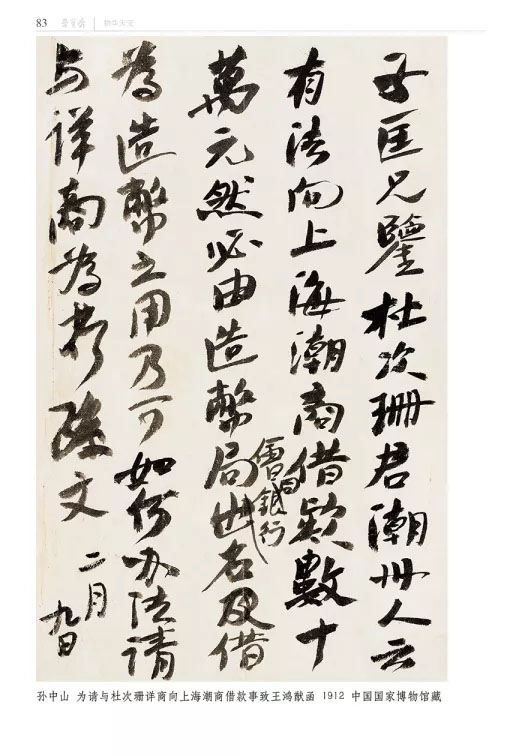 83
物华天宝
子匡兄鑒杜次珊君潮州人云
有法向上海潮商借欵數十
萬元然必由造幣局出名及借
會同銀行
為造幣之用乃可如何办法請
与詳商為 孫文
二月
九日
孙中山 为请与杜次珊详商向上海潮商借款事致王鸿猷函 1912 中国国家博物馆藏